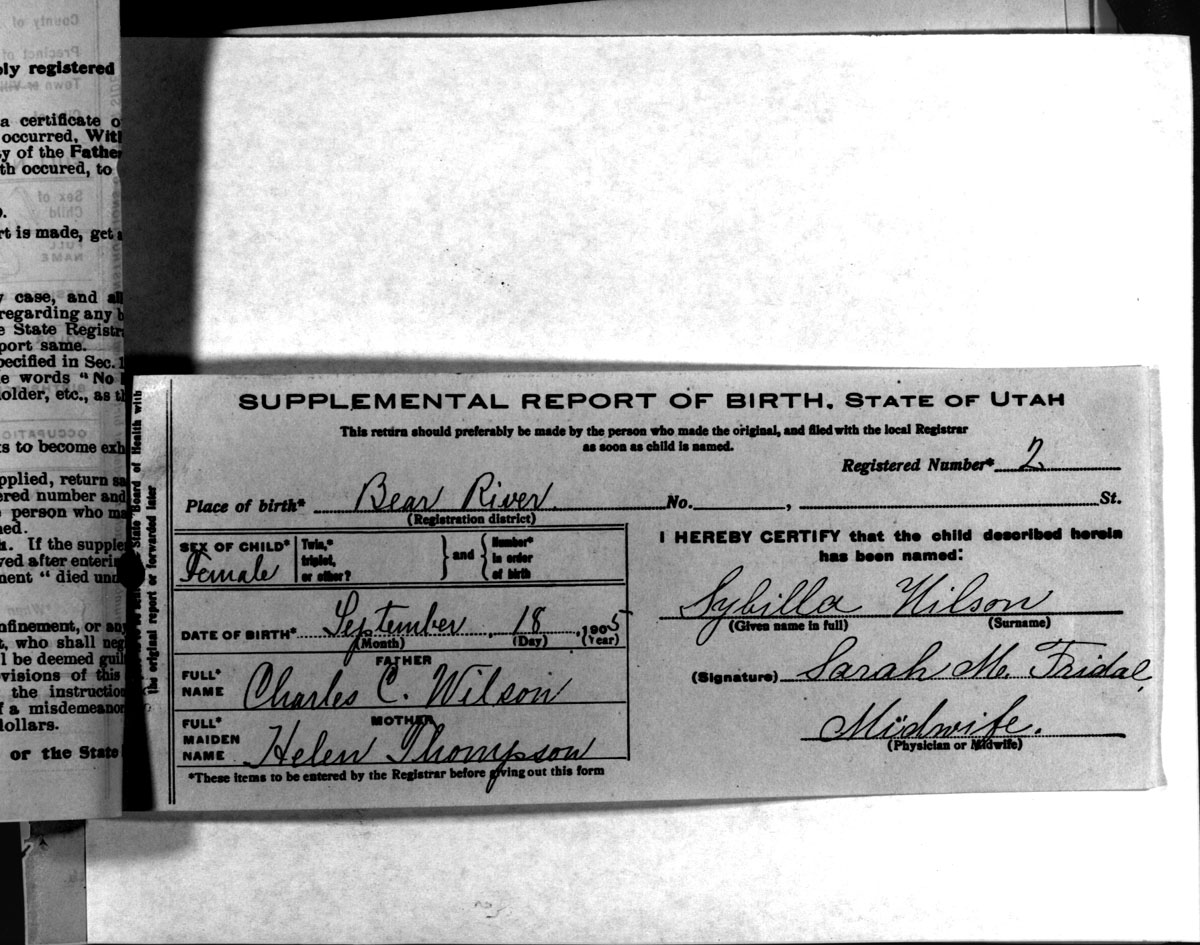 County of
Precinct of
ply registered
Town or Vill
a certificate o
occurred, With
y of the Father
th occured, to
Sex of
Child
rt is made, get a
FULL
NAME
y case, and all
regarding any b
e State Registr
port same.
pecified in Sec. 1
e words "No
older, etc., as th
OCCUPATIO
ks to become exh
pplied, return sa
ered number and
person who ma
ned.
If the supple
ved after enterin
ment "died unn
nfinement, or any
t, who shall neg
l be deemed guil
ovisions of this
the instruction
f a misdemeanor
dollars.
or the State
State Board of Health with
the original report or forwarded later
SUPPLEMENTAL REPORT OF BIRTH, STATE OF UTAH
This return should preferably be made by the person who made the original, and filed with the local Registrar
as soon as child is named.
Registered Number* 2
Place of birth* Bear River No. , St.
(Registration district)
SEX OF CHILD* Female
Twin,* triplet, or other? } and { Number* in order of birth
DATE OF BIRTH* September, 18, 1905
(Month) (Day) (Year)
FATHER
FULL* NAME Charles C. Wilson
MOTHER
FULL* MAIDEN NAME Helen Thompson
*These items to be entered by the Registrar before giving out this form
I HEREBY CERTIFY that the child described herein
has been named:
Sybilla Wilson
(Given name in full) (Surname)
(Signature) Sarah M. Fridal,
Midwife.
(Physician or Midwife)